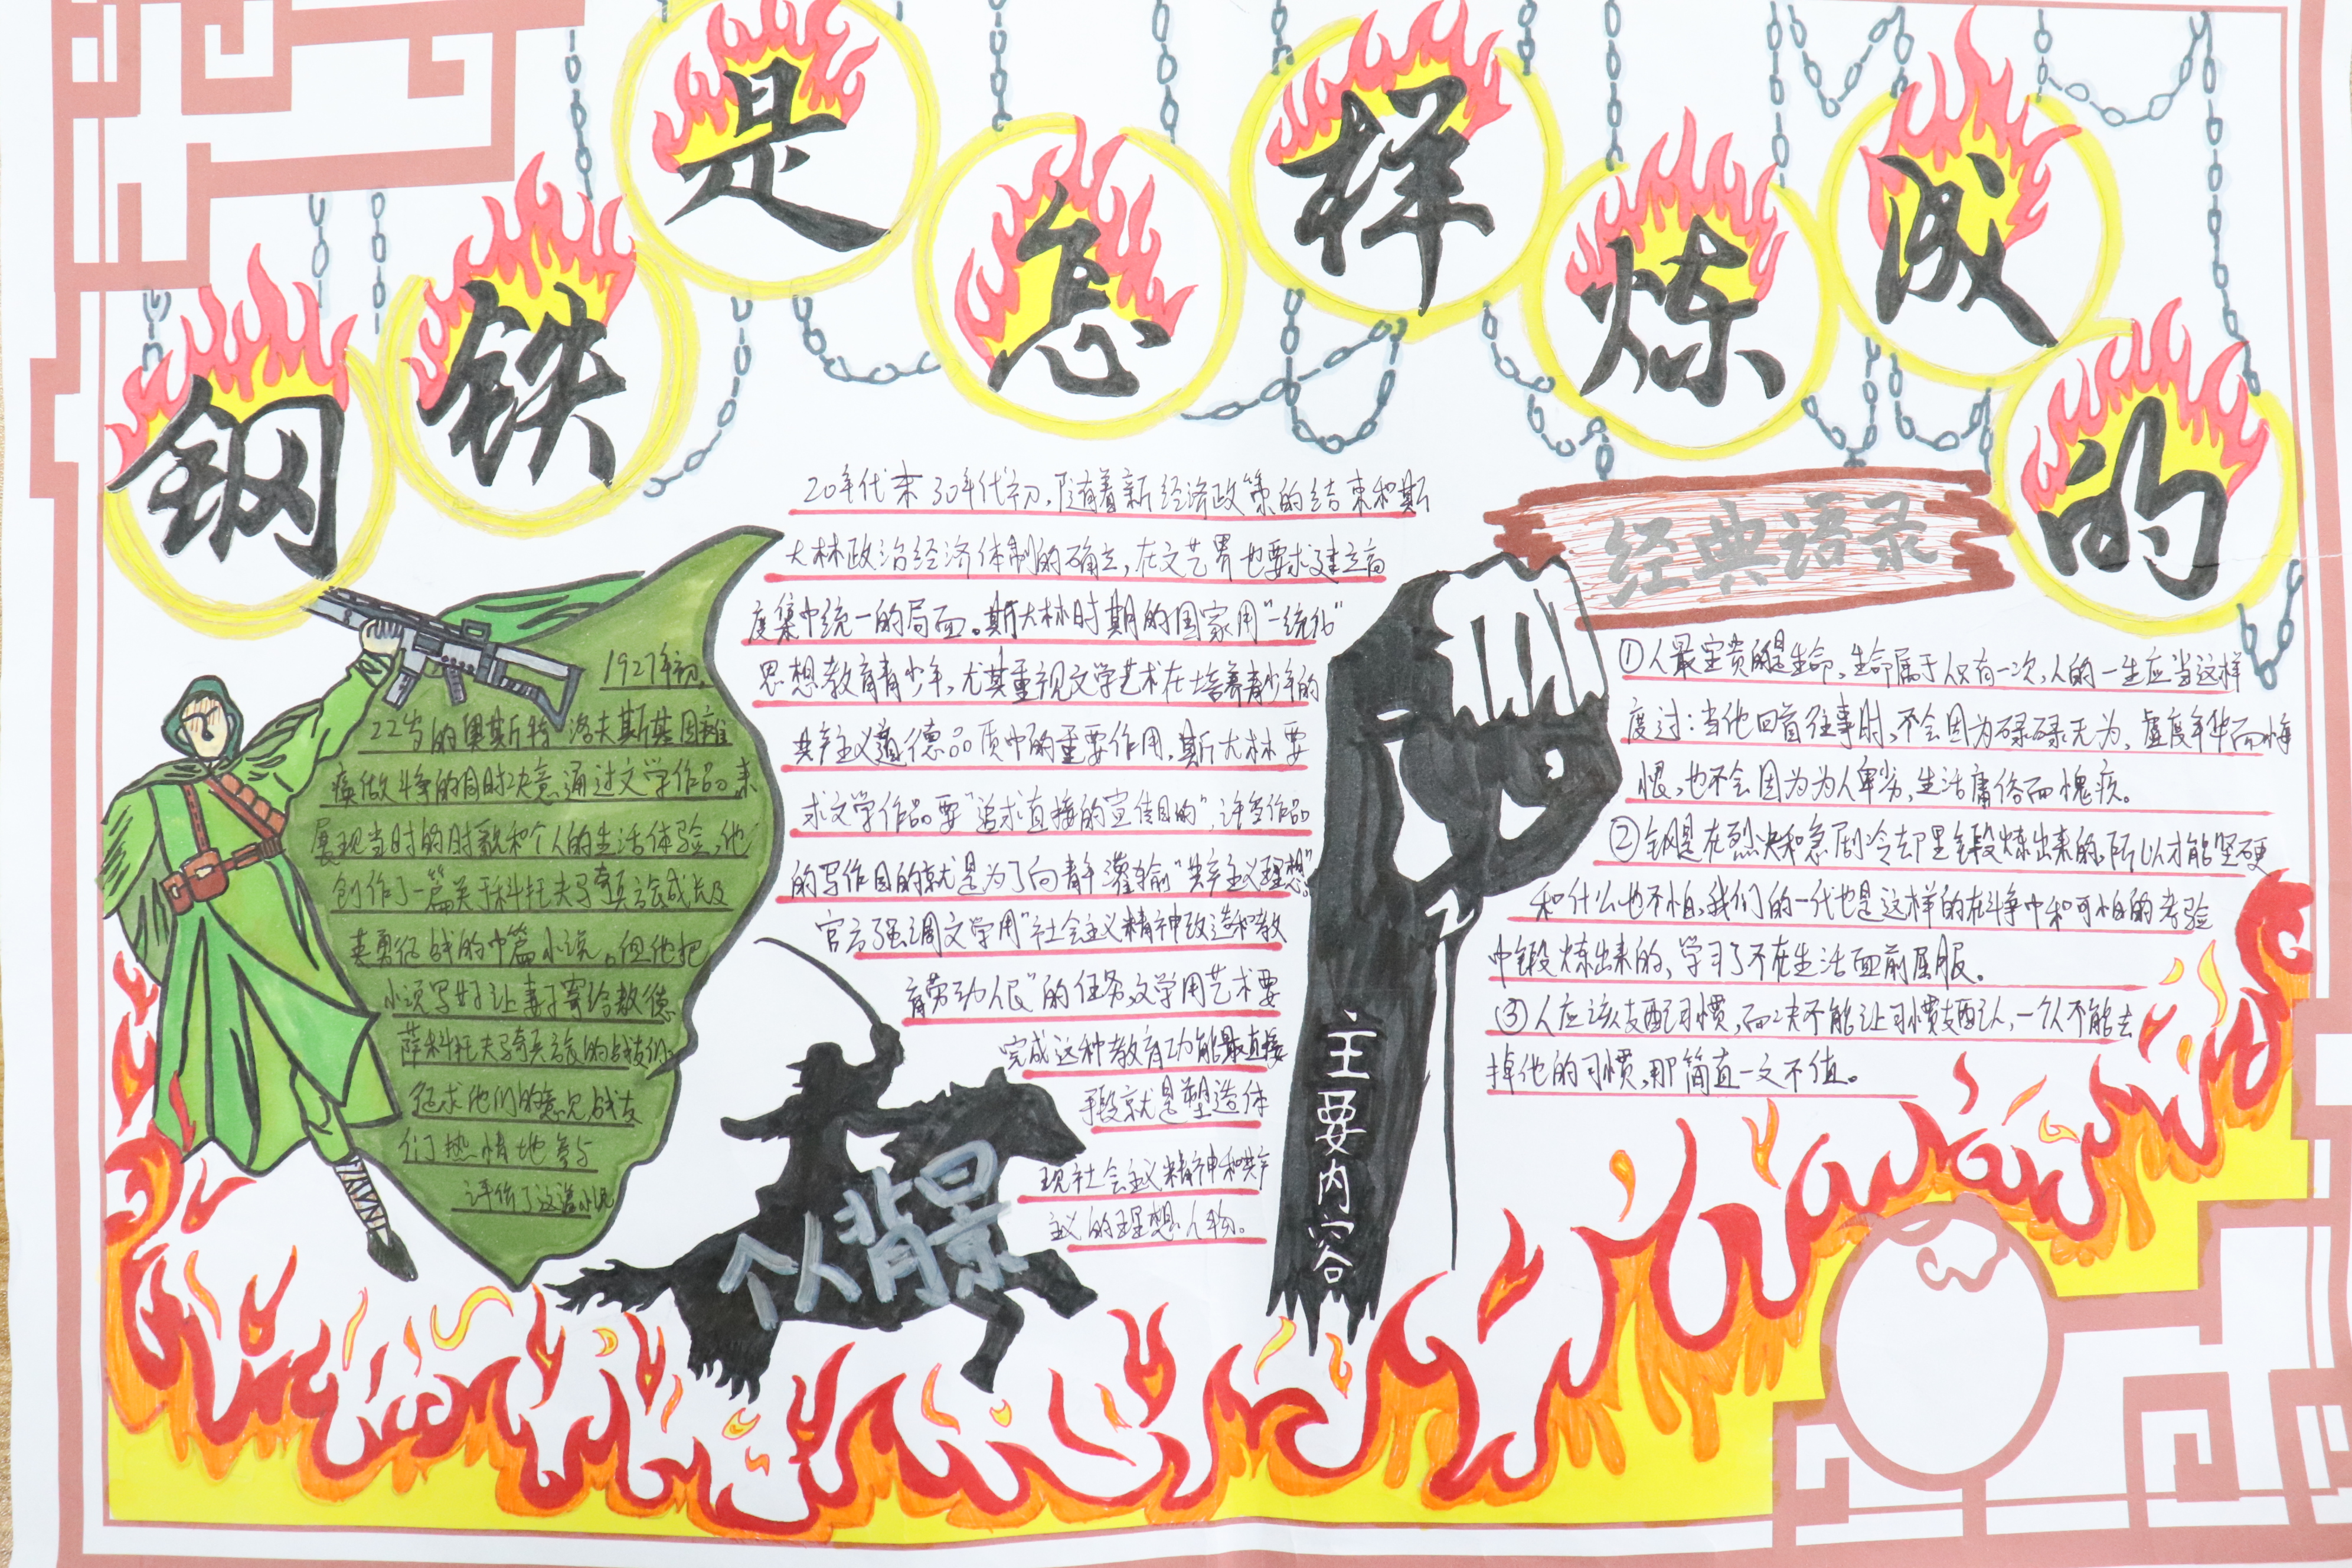 钢铁是怎样炼成的
1927年初,
22岁的奥斯特洛夫斯基因难
痪做斗争的同时决意通过文学作品来
展现当时的时貌和个人的生活体验,他
创作了一篇关于科托夫骑兵旅成长及
英勇征战的中篇小说。但他把
小说写好让妻子寄给敖德
萨科托夫骑兵旅的战友们
征求他们的意见战友
们热情地参与
评价了这篇小说
20年代末30年代初,随着新经济政策的结束和斯
大林政治经济体制的确立,在文艺界也要求建立高
度集中统一的局面。斯大林时期的国家用“一统化”
思想教育青少年,尤其重视文学艺术在培养青少年的
共产主义道德品质中的重要作用,斯大林要
求文学作品要“追求直接的宣传目的”,许多作品
的写作目的就是为了向青年灌输“共产主义理想”。
官方强调文学用“社会主义精神改造和教
育劳动人民”的任务,文学用艺术要
完成这种教育功能最直接
手段就是塑造体
现社会主义精神和共产
主义的理想人物。
个人背景
主要内容
经典语录
①人最宝贵的是生命,生命属于人只有一次,人的一生应当这样
度过:当他回首往事时,不会因为碌碌无为、虚度年华而悔
恨,也不会因为为人卑劣,生活庸俗而愧疚。
②钢是在烈火和急剧冷却里锻炼出来的,所以才能坚硬
和什么也不怕,我们的一代也是这样的在斗争中和可怕的考验
中锻炼出来的,学习了不在生活面前屈服。
③人应该支配习惯,而决不能让习惯支配人,一个人不能去
掉他的习惯,那简直一文不值。